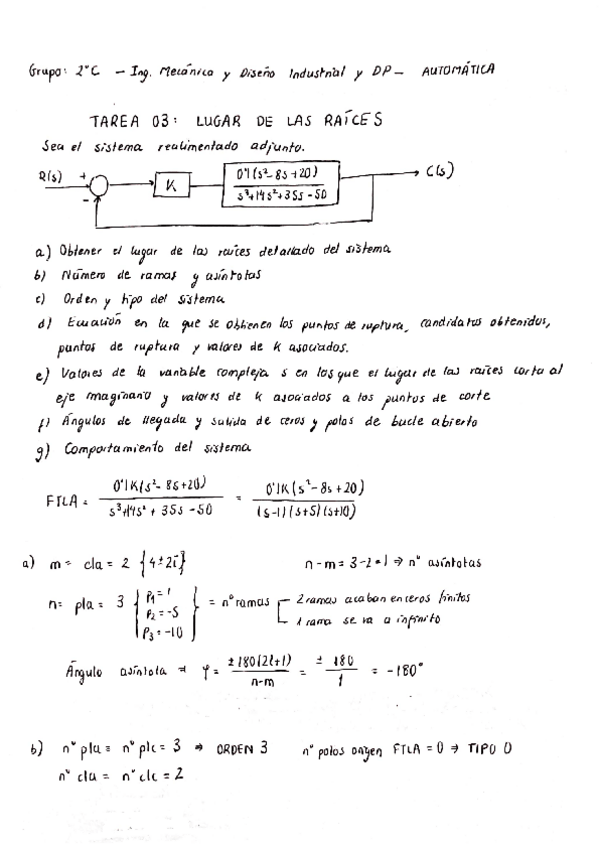 Grupo: 2ºC - Ing. Mecánica y Diseño Industrial y DP - AUTOMÁTICA
TAREA 03: LUGAR DE LAS RAÍCES
Sea el sistema realimentado adjunto.
R(s) + - K 0'1(s²-8s+20) C(s)
s³+14s²+35s-50
a) Obtener el lugar de las raíces detallado del sistema
b) Número de ramas y asíntotas
c) Orden y tipo del sistema
d) Ecuación en la que se obtienen los puntos de ruptura, candidatos obtenidos,
puntos de ruptura y valores de K asociados.
e) Valores de la variable compleja s en los que el lugar de las raíces corta al
eje imaginario y valores de K asociados a los puntos de corte
f) Ángulos de llegada y salida de ceros y polos de bucle abierto
g) Comportamiento del sistema
FTLA = 0'1K(s²-8s+20) / s³+14s²+35s-50 = 0'1K(s²-8s+20) / (s-1)(s+5)(s+10)
a) m = cla = 2 {4±2i} n-m = 3-2=1 ⇒ nº asíntotas
n = pla = 3 { P₁=1 P₂=-5 P₃=-10 } = nº ramas 2 ramas acaban en ceros finitos
1 rama se va a infinito
Ángulo asíntota ⇒ φ = ±180(2l+1) / n-m = ±180 / 1 = -180°
b) nº pla = nº plc = 3 ⇒ ORDEN 3 nº polos origen FTLA = 0 ⇒ TIPO 0
nº cla = nº clc = 2